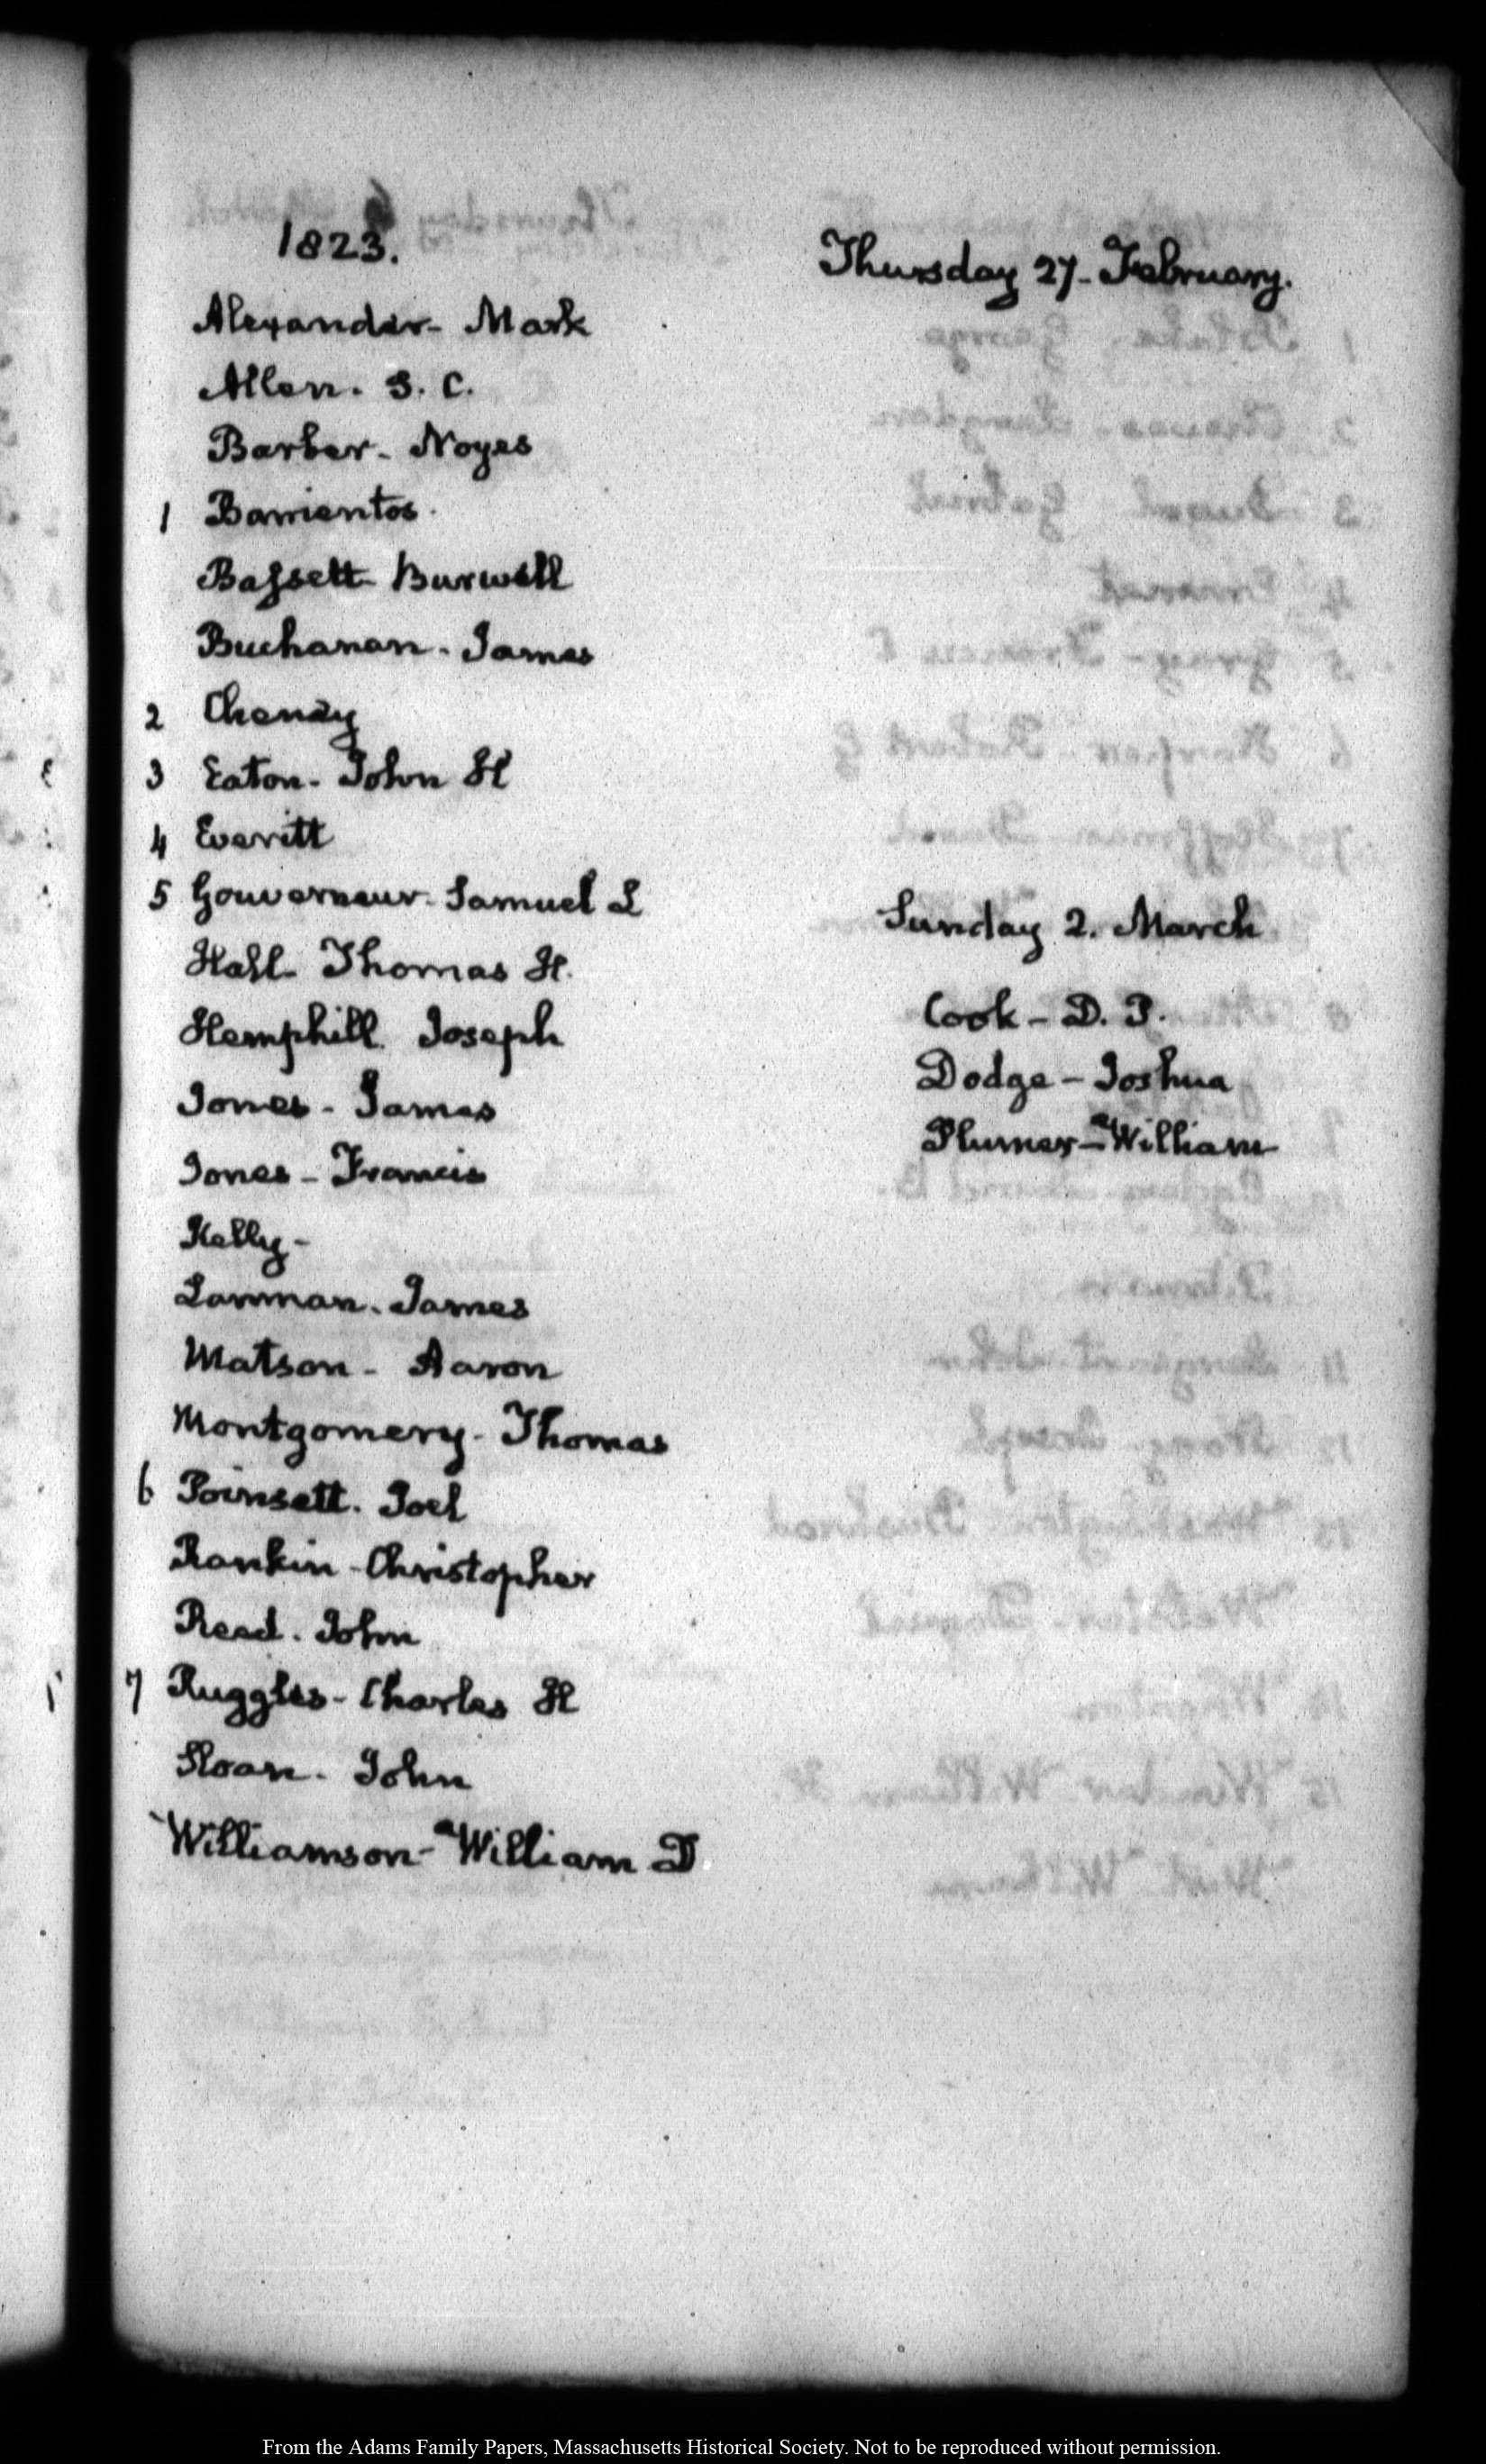 1823.
Thursday 27. February.
Alexander- Mark
Allen. S. C.
Barber- Noyes
1 Barrientos.
Bassett- Burwell
Buchanan. James
2 Cheney
3 Eaton- John H
4 Everitt
5 Gouverneur- Samuel L
Hall- Thomas H.
Hemphill Joseph
Jones- James
Jones- Francis
Kelly-
Lanman. James
Matson- Aaron
Montgomery- Thomas
6 Poinsett. Joel
Rankin- Christopher
Reed. John
7 Ruggles- Charles H
Sloan. John
Williamson- William D.
Sunday 2. March
Cook- D. P.
Dodge- Joshua
Plumer- William
From the Adams Family Papers, Massachusetts Historical Society. Not to be reproduced without permission.